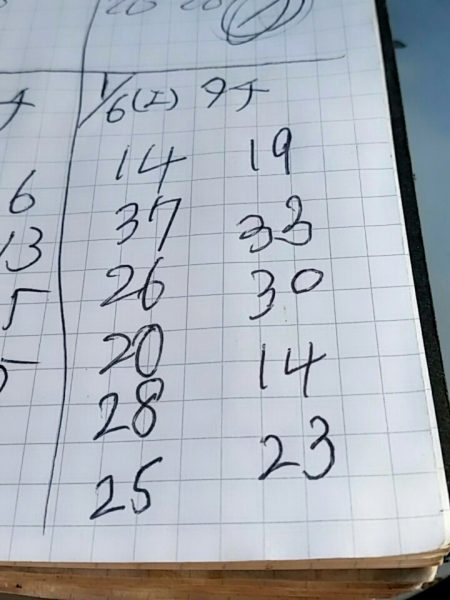 20 20
1/6(エ) タチ
14 19
6
37 33
13
26 30
5
20 14
28
25 23